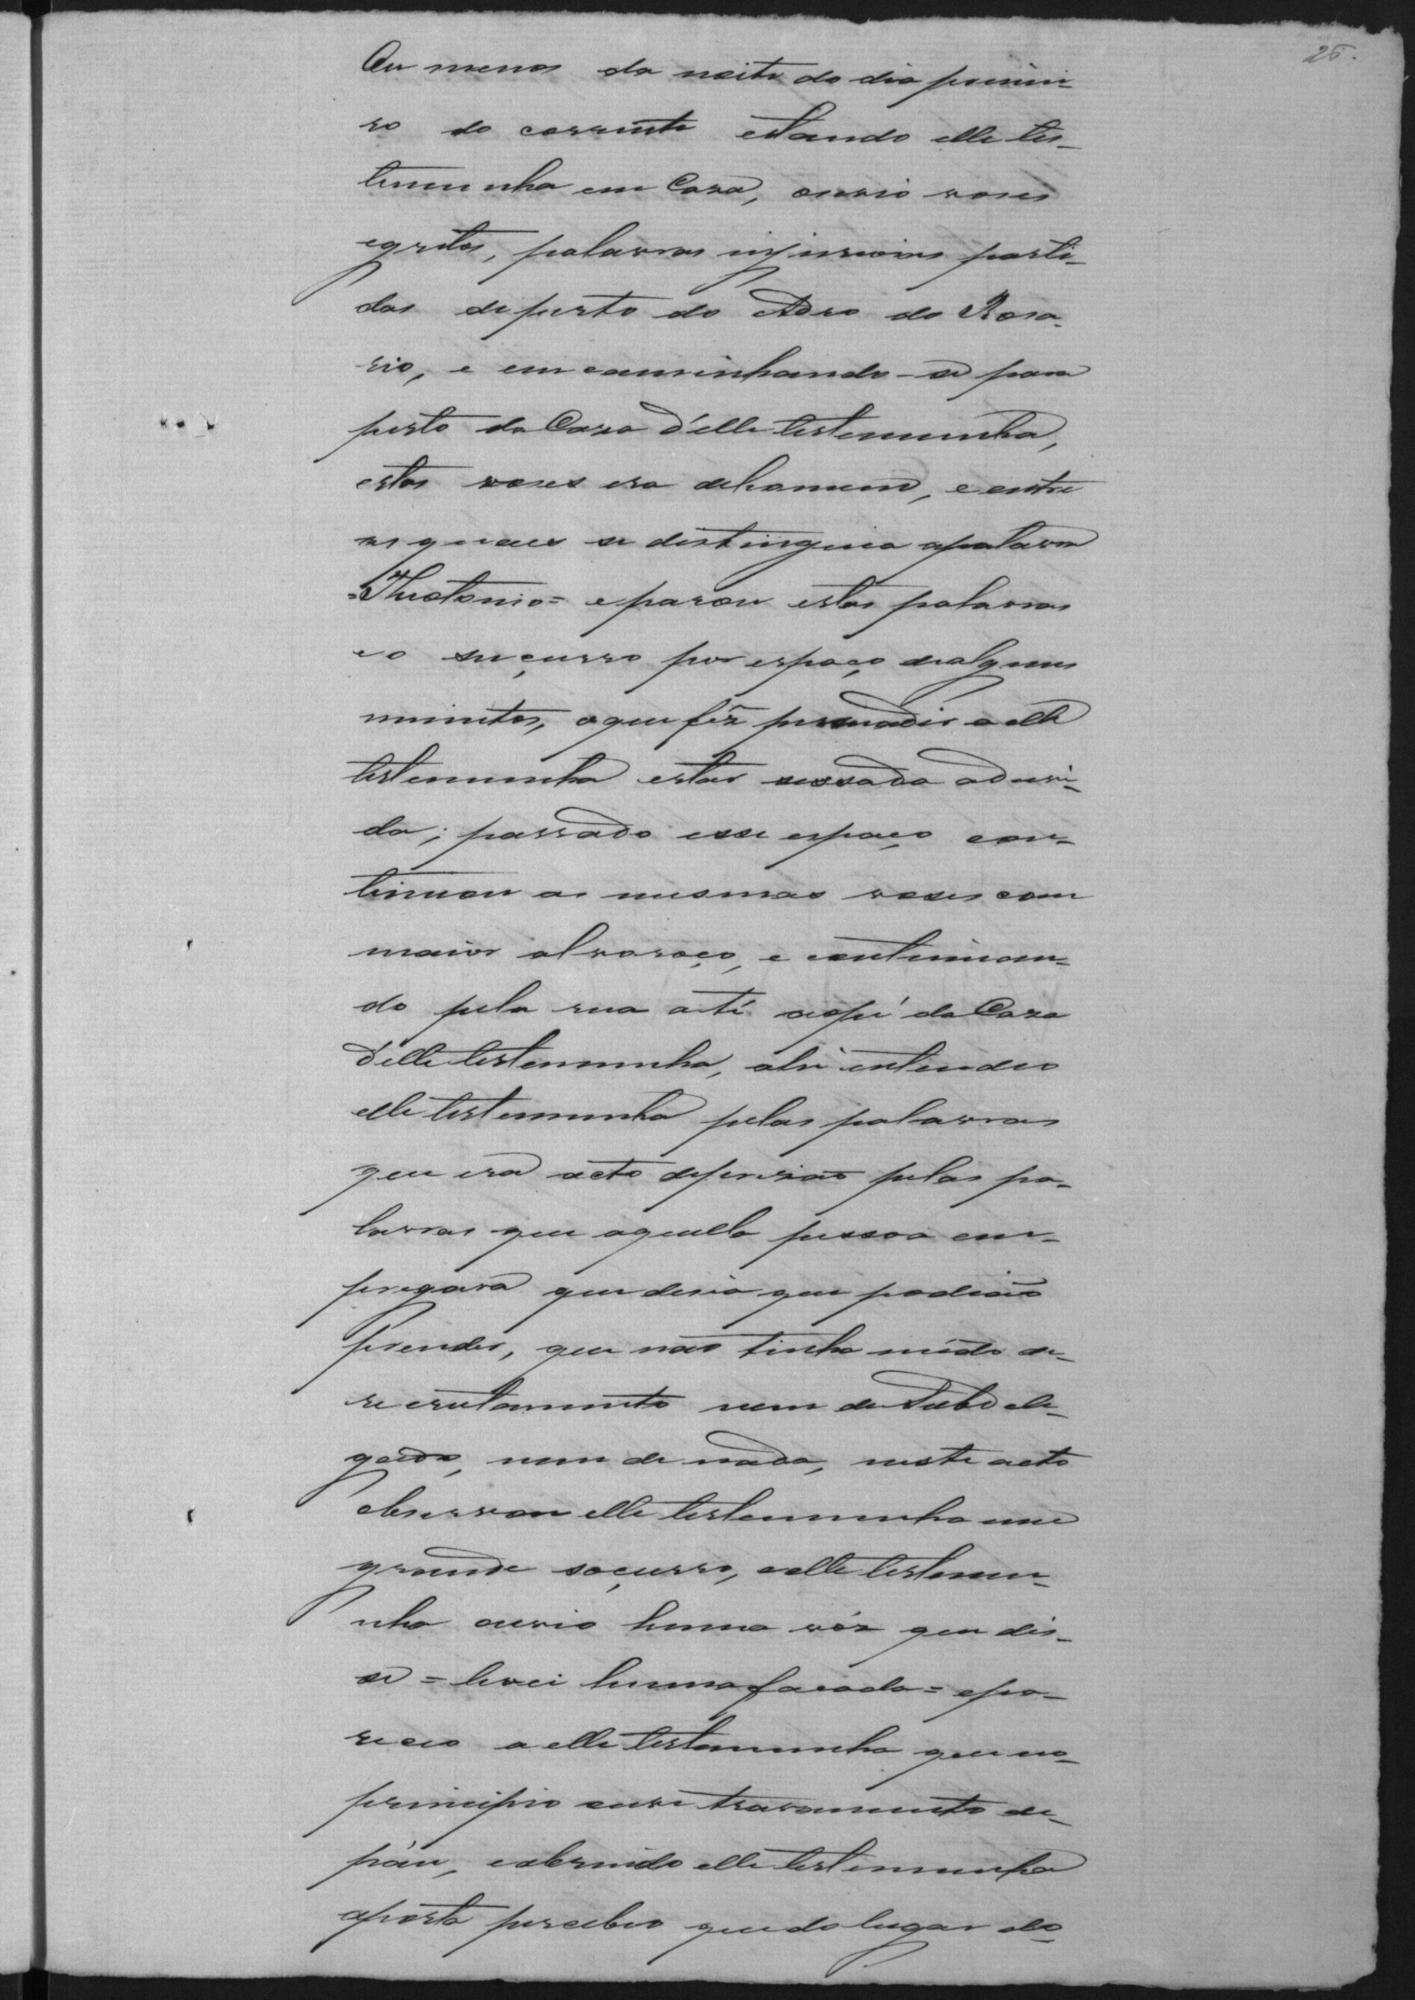 25.
Ou menos da noite do dia primei-
ro do corrente estando elle tes-
temunha em Casa, ouvio vozes
egritos, palavras injuriosas parti-
das de perto do Adro do Rosa-
rio, e em caminhando-se para
perto da Casa d'elle testemunha,
estas vozes era dehomem, e entre
as quaes se distinguia apalavra
=Theotonio= eparou estas palavras
eo suçurro por espaço dealguns
minutos, oque fêz persuadir a elle
testemunha estar sessada aduvi-
da; passado esse espaço con-
tinuou as mesmas vozes com
maior alvoroço, e continuan-
do pela rua até aopé da Casa
d'elle testemunha, ahi entendeo
elle testemunha pelas palavras
que era acto deprizão pelas pa-
lavras que aquella pessoa em-
pregava que desia que podião
prender, que não tinha mêdo de-
recrutamento nem de Subdele-
gado, nem de nada, neste acto
observou elle testemunha um
grande soçurro, eelle testemu-
nha ouvio huma vóz que dis-
se = levei huma facada = epa-
receo a elle testemunha que no-
principio ouve travamento de-
páu, eabrindo elle testemunha
aporta percebeo quedo lugar do-